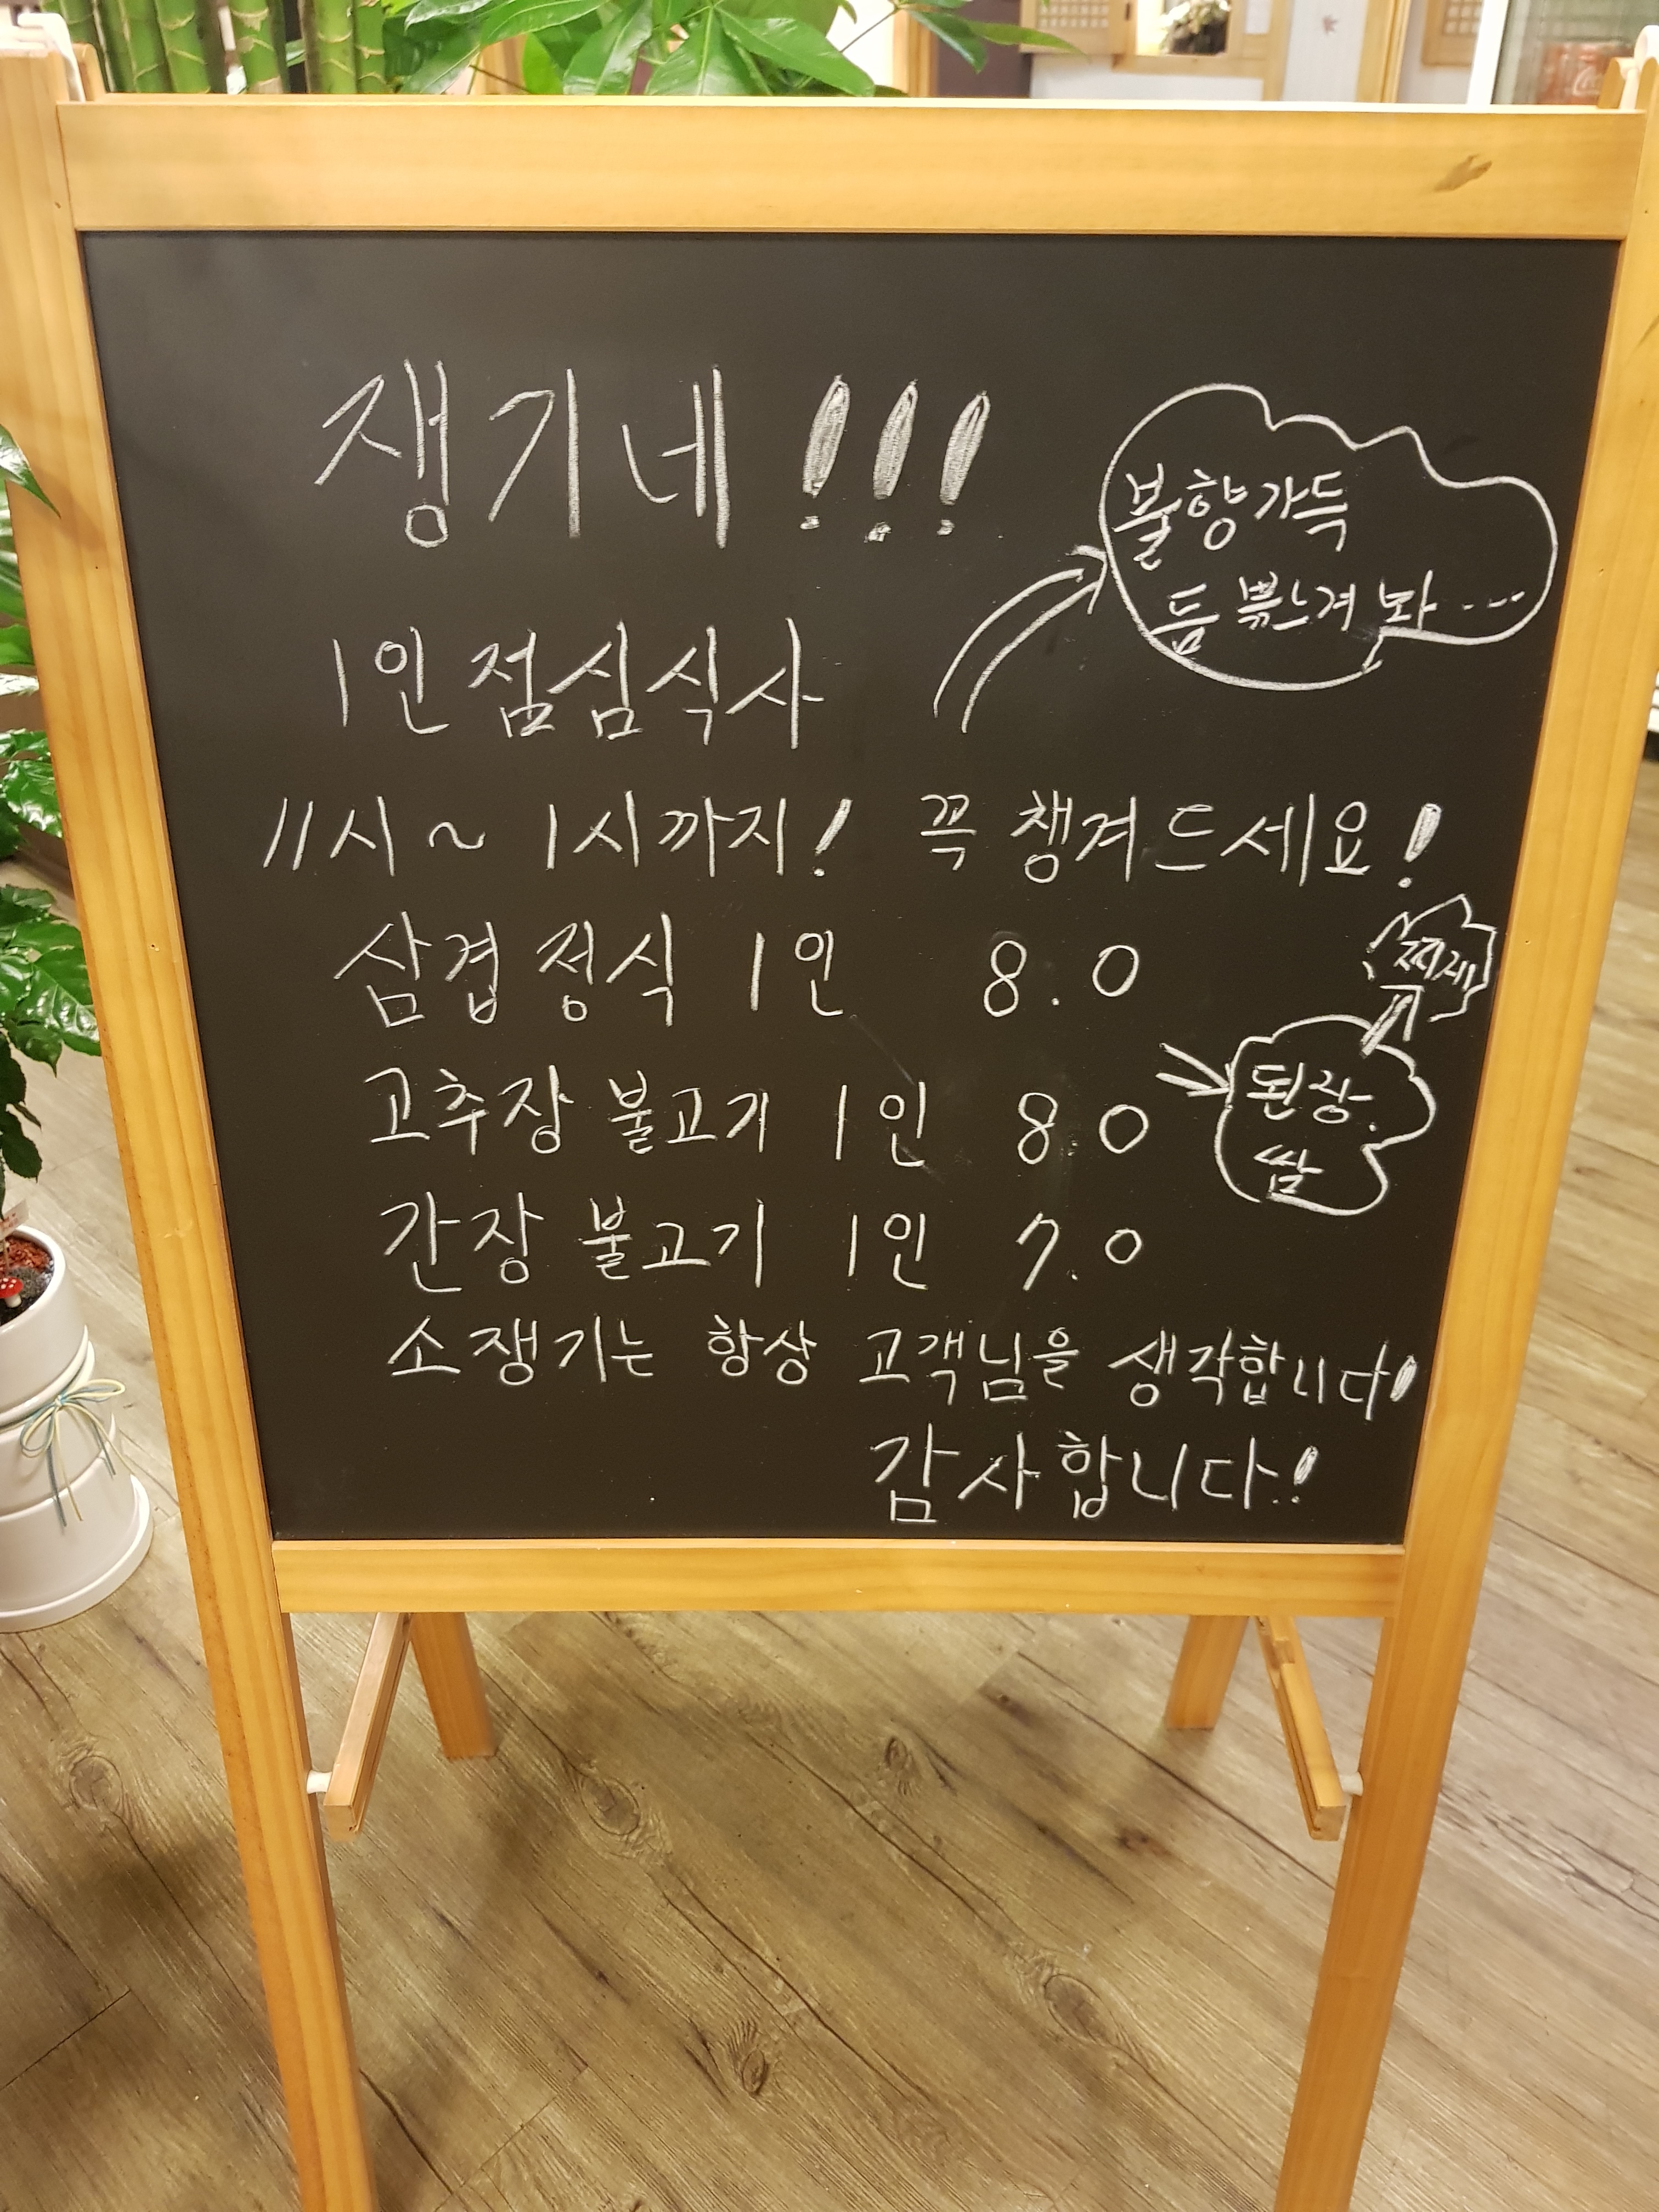 쟁기네!!!
불향가득
듬뿍느껴봐...
1인 점심식사
11시 ~ 1시까지! 꼭 챙겨드세요!
삼겹 정식 1인 8.0
찌개
고추장 불고기 1인 8.0
된장.
쌈
간장 불고기 1인 7.0
소쟁기는 항상 고객님을 생각합니다!
감사합니다.!